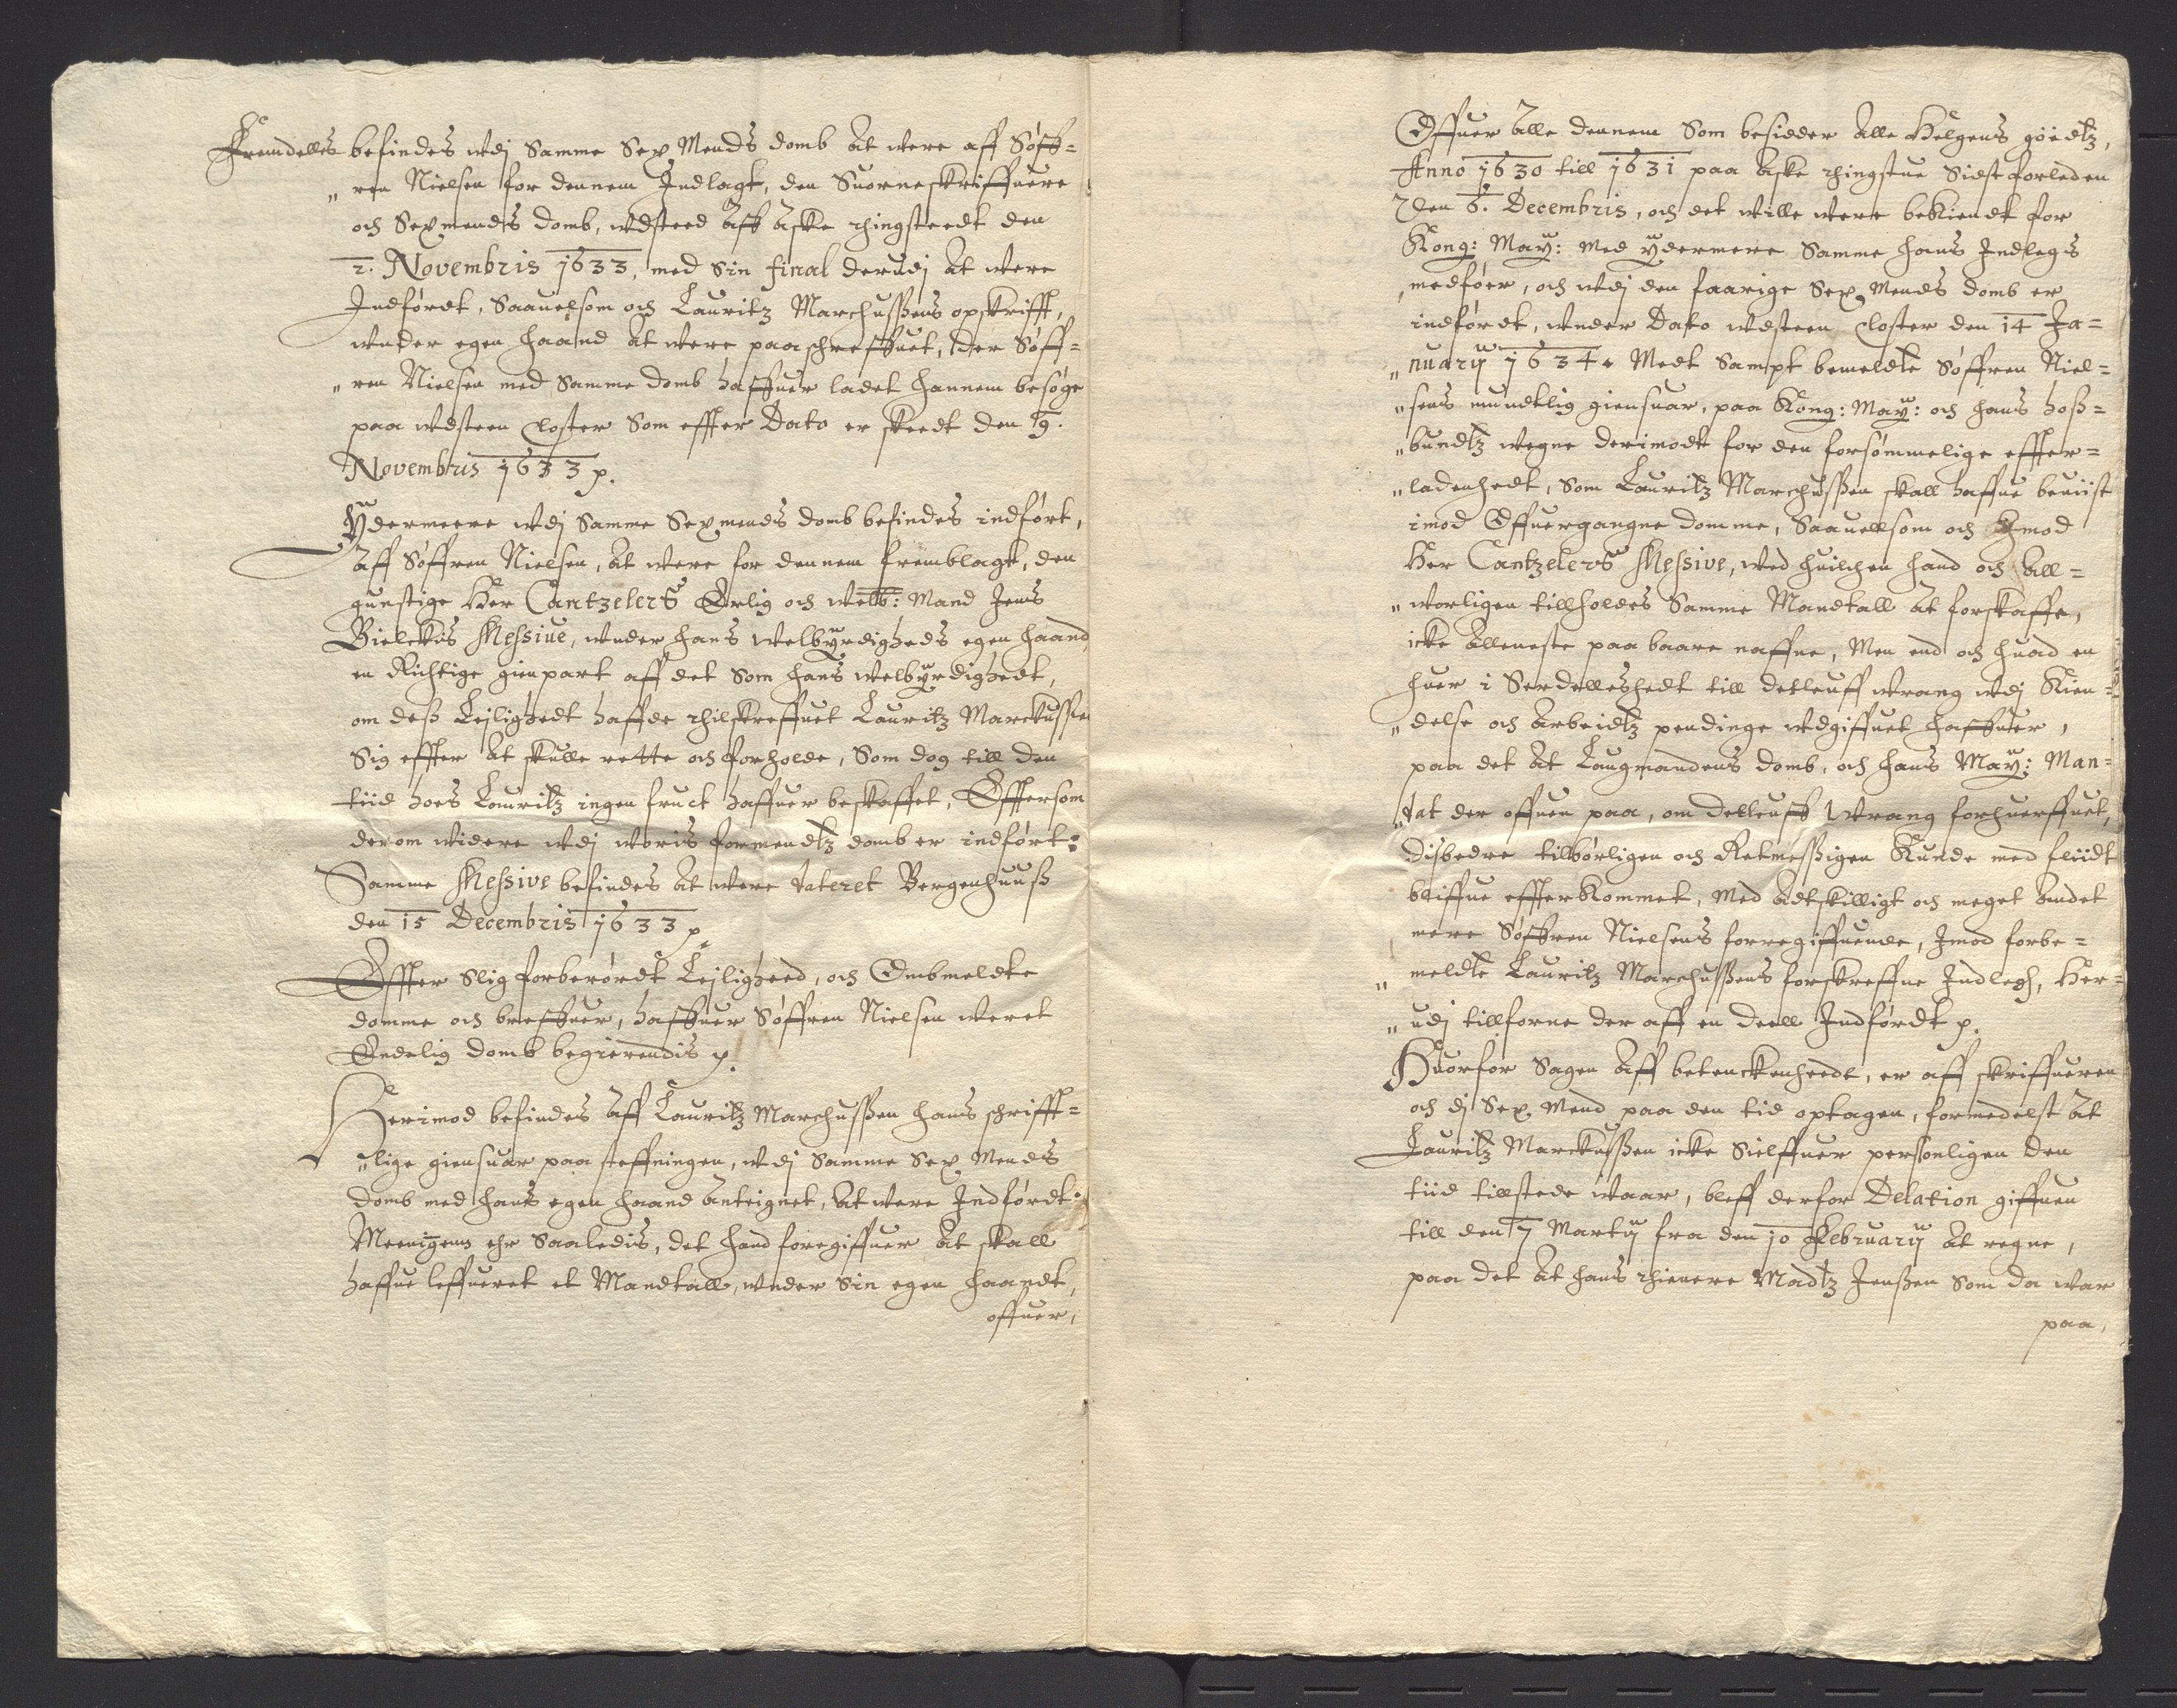 Fremdelles befindes wdj Samme Sex Mends domb at were aff Søff=
„ ren Nielsen for dennem Indlagt, den Suorneskriffuere
och Sexmends domb, wdsteed aff Aske thingsteedt den
2. Novembris 1633, med Sin final derudj at were
Indførdt, Saauelsom och Lauritz Marchussens opskrifft,
wnder egen haand at were paaschreffuet, der Søff=
„ ren Nielsen med Samme domb haffuer ladet hannem besøge
paa wdsteen Closter Som effter Dato er skeedt den 19.
Novembris 1633 p.
Ydermeere wdj Samme Sexmends domb befindes indført,
Aff Søffren Nielsen, at were for dennem fremblagt, den
gunstige Her Cantzelers Erlig och welb: Mand Jens
Bielckis Messive, wnder hans Welbyrdigheds egen haand,
en Richtige gienpart aff det Som hans welbyrdighedt,
om dess Leilighedt haffde thilskreffuet Lauritz Marckussen
Sig effter at skulle rette och forholde, Som dog till den
tiid hoes Lauritz ingen fruct haffuer beskaffet, Effttersom
derom widere wdj woris formendtz domb er indført:
Samme Messive befindes at were dateret Bergenhuuss
den 15 Decembris 1633 p
Effter Slig forberørdt Leiligheed, och Ombmeldte
domme och breffuer, haffuer Søffren Nielsen weret
Endelig domb begierendis p.
Herimod befindes Aff Lauritz Marchussen hans schrifft=
„ lige giensuar paa steffningen, wdj Samme Sex Mends
domb med hans egen haand Anteignet, at were Indførdt
Meenigens ehr Saaledis, det hand foregiffuer at skall
haffue leffueret et Mandtall, wnder Sin egen haandt,
offuer,
Offuer Alle dennem Som besidder Alle Helgens goedtz,
Anno 1630 till 1631 paa Aske thingstue Sidst forleden
Den 6. Decembris, och det wille were bekiendt for
Kong: May: med ydermere Samme hans Indlegs
medføer, och wdj den faarige Sex Mends domb er
indførdt, wnder Dato wdsteen Closter den 14 Ja=
„ nuarij 1634. Medt Sampt bemeldte Søffren Niel=
„ sens mundtlig giensuar, paa Kong: May: och hans hoss=
„ bundtz wegne derimodt for den forsømmelige effter=
„ ladenhedt, Som Lauritz Marchussen skall haffue beuiist
imod Offuergangne domme, Saauellsom och Imod
Her Cantzelers Messive, wed huilchen hand och All=
„ worligen tillholdes Samme Mandtall at forskaffe,
icke Alleneste paa baare naffne, Men end och huad en
huer i Serdelleshedt till detleuff wrang wdj Kien=
„ delse och Arbeidtz pendinge wdgiffuet haffuer,
paa det at Laugmandens domb, och hans May: Man=
„ dat der offuen paa, om detleuff Wrang forhuerffuet,
Disbedre tilbørligen och Retmessigen Kunde med fliidt
bliffue effterkommet, Med Adtskilligt och meget Andet
mere Søffren Nielsens forregiffuende, Imod forbe=
„ meldte Lauritz Marchussens forskreffne Indlegh, Her=
„ udj tillforne der aff en deell Indførdt p.
Huorfor Sagen Aff betenckenheedt, er aff skriffueren
och dj Sex Mend paa den tid optagen, formedelst at
Lauritz Marckussen icke Sielffuer personligen den
tiid tillstede waar, bleff derfor Delation giffuen
till den 7 Martij fra den 10 February at regne,
paa det at hans thienere Madtz Jenssen Som da war
paa,